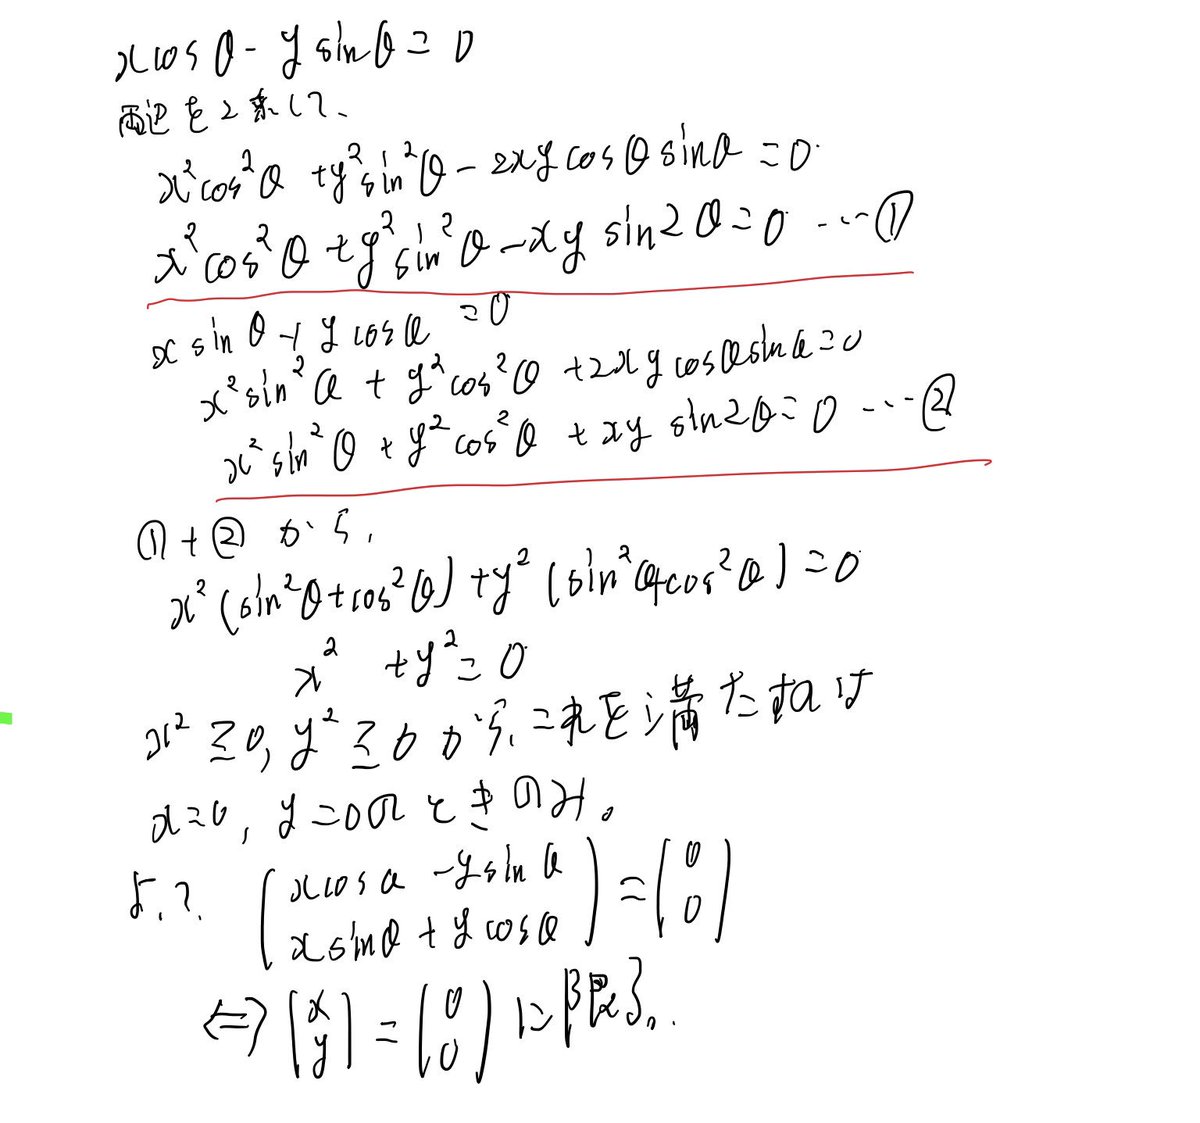 x cosθ - y sinθ = 0
両辺を2乗して、
x²cos²θ + y²sin²θ - 2xy cosθ sinθ = 0
x²cos²θ + y²sin²θ - xy sin2θ = 0 …①
x sinθ + y cosθ = 0
x²sin²θ + y²cos²θ + 2xy cosθ sinθ = 0
x²sin²θ + y²cos²θ + xy sin2θ = 0 …②
①+② から、
x²(sin²θ + cos²θ) + y²(sin²θ + cos²θ) = 0
x² + y² = 0
x² ≧ 0, y² ≧ 0 から、これを満たすのは
x=0, y=0のときのみ。
よって、(x cosθ - y sinθ
x sinθ + y cosθ) = (0
0)
⇔ (x
y) = (0
0) に限る。